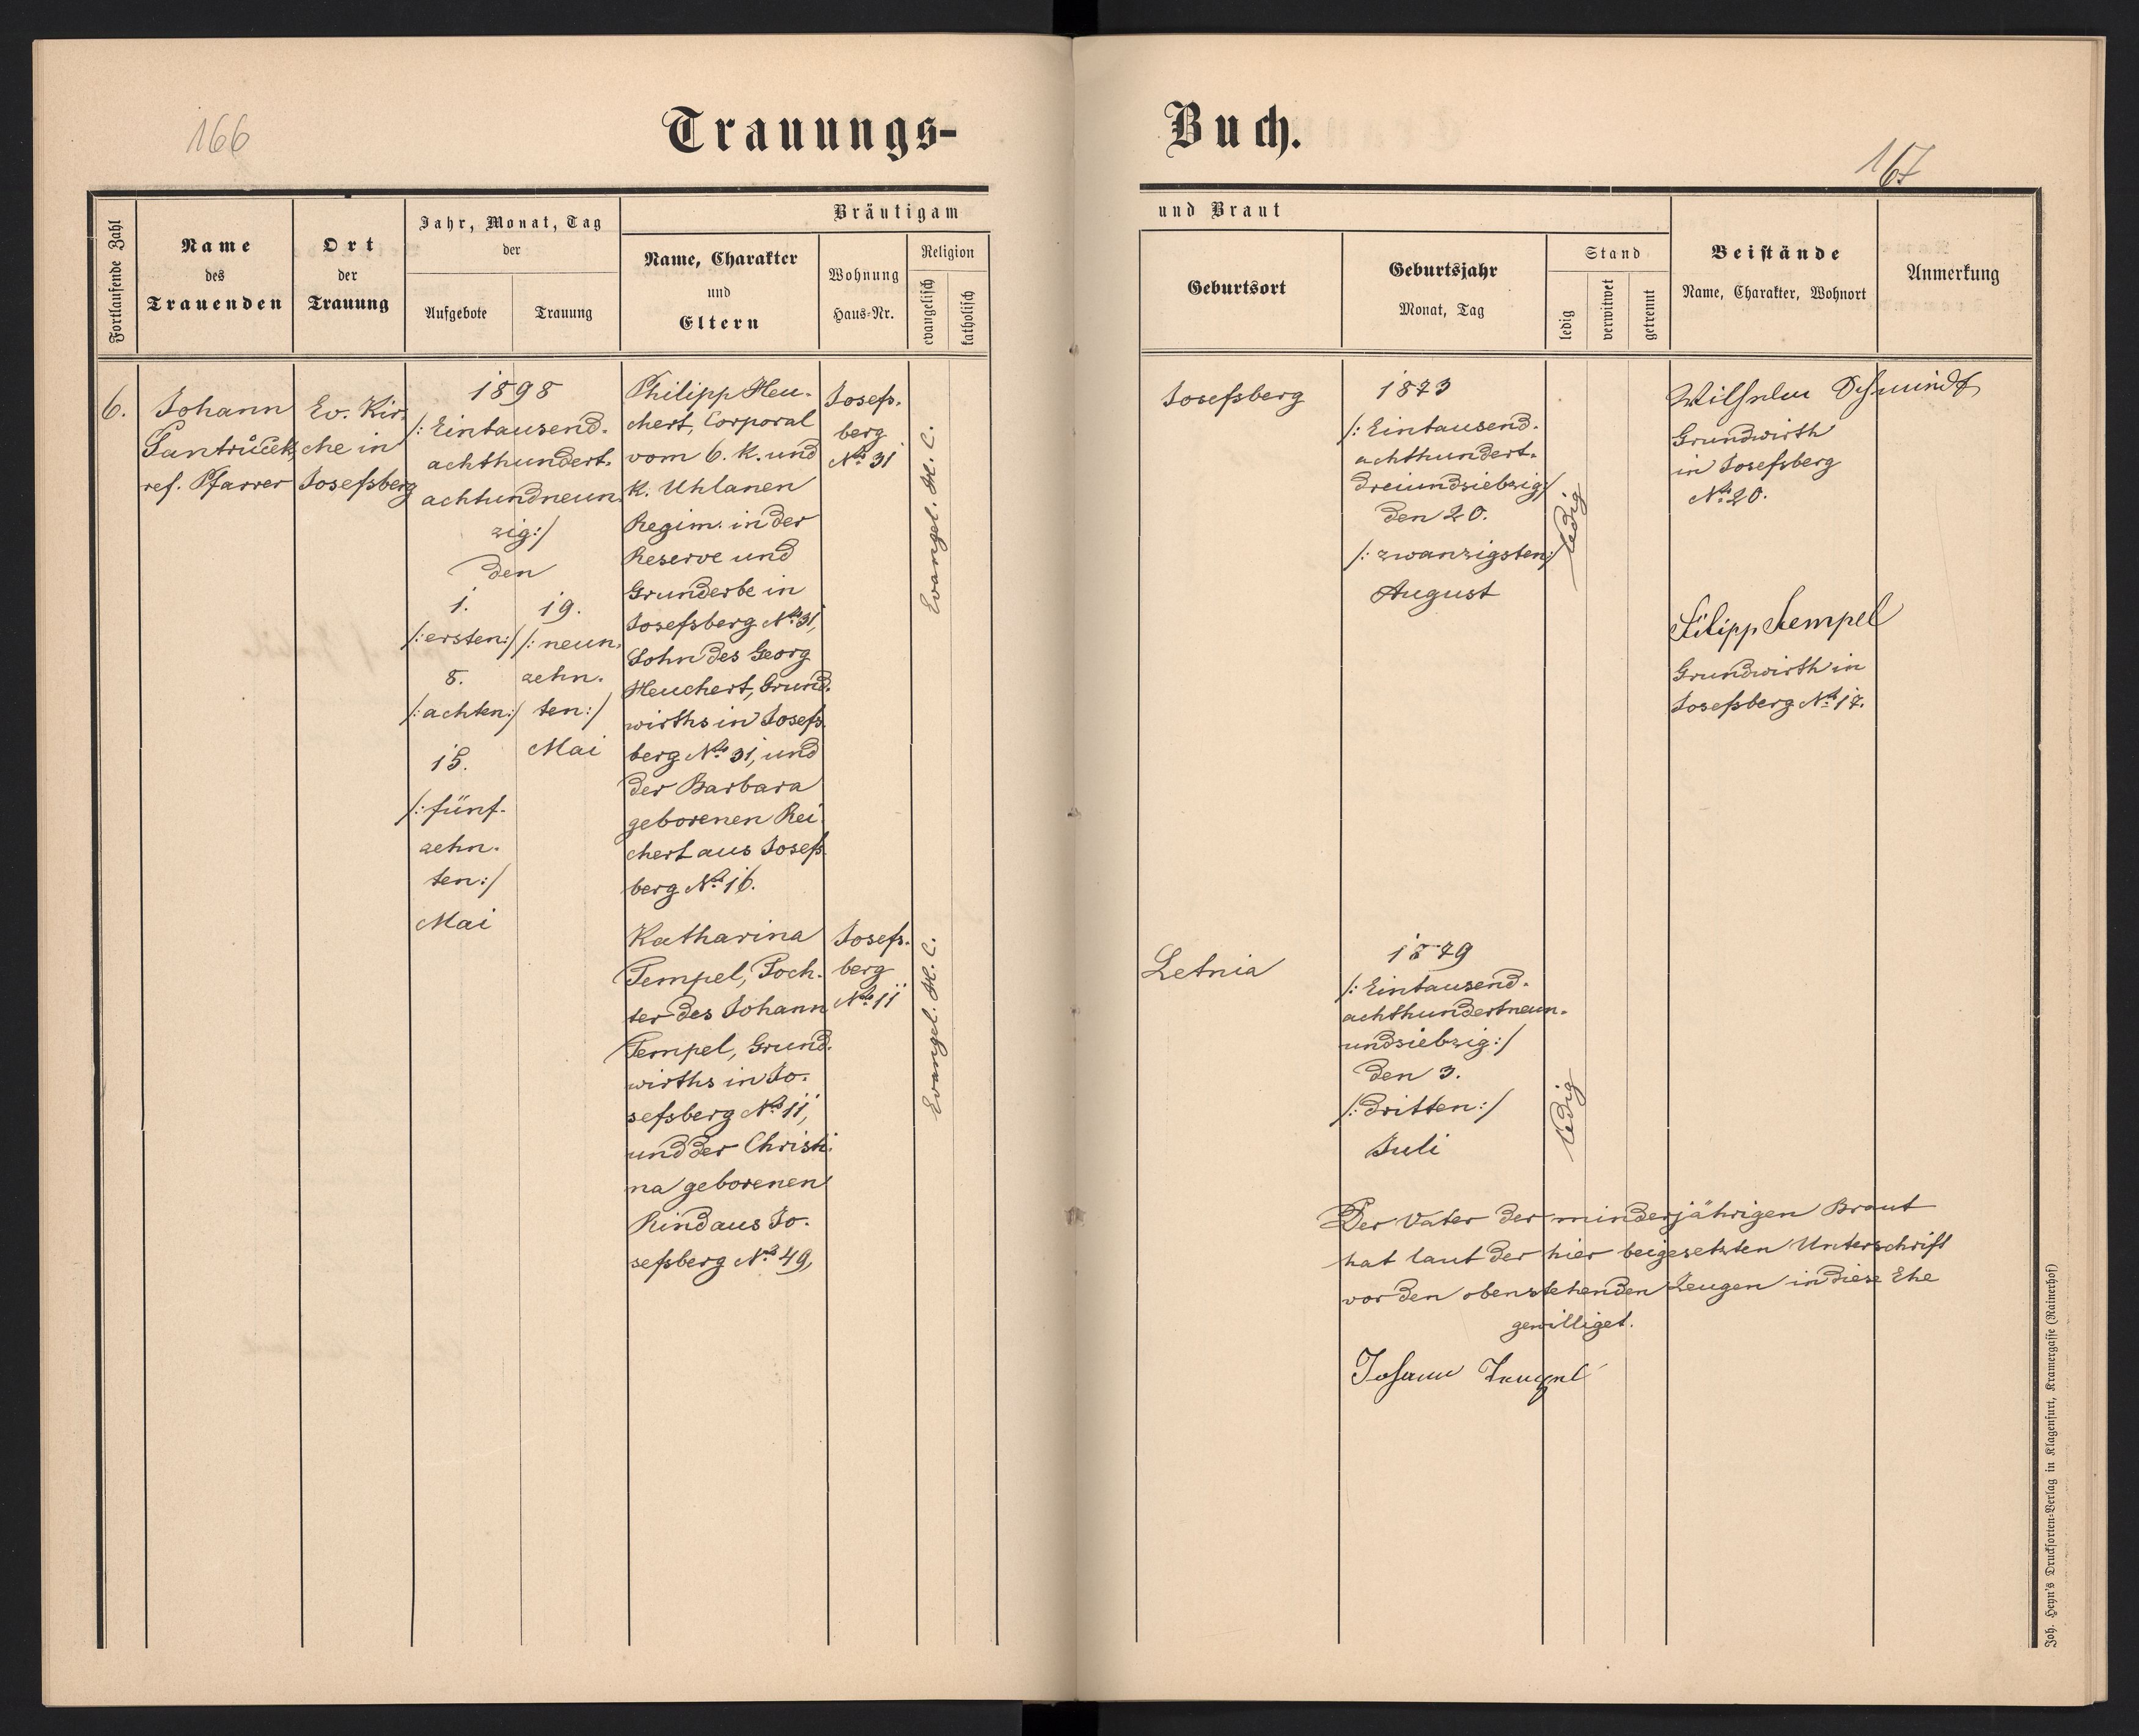 166
Trauungs-
Buch.
167
Fortlaufende Zahl
Name
des
Trauenden
Ort
der
Trauung
Jahr, Monat, Tag
der
Aufgebote
Trauung
Bräutigam
Name, Charakter
und
Eltern
Wohnung
Haus-Nr.
Religion
evangelisch
katholisch
und Braut
Geburtsort
Geburtsjahr
Monat, Tag
Stand
ledig
verwitwet
getrennt
Beistände
Name, Charakter, Wohnort
Anmerkung
6.
Johann
Jantrůček,
ref. Pfarrer
Ev. Kir-
che in
Josefsberg
1898
/: Eintausend-
achthundert-
achtundneun-
zig:/
den
1.
/:ersten:/
8.
/:achten:/
15.
/:fünf-
zehn-
ten:/
Mai
19.
/:neun-
zehn-
ten:/
Mai
Philipp Heu-
chert, Corporal
vom 6. K. und
K. Uhlanen
Regim. in der
Reserve und
Grunderbe in
Josefsberg No 31,
Sohn des Georg
Heuchert, Grund-
wirths in Josefs-
berg No 31, und
der Barbara
geborenen Rei-
chert aus Josefs-
berg No 16.
Josefs-
berg
No 31
Evangel. H. C.
Katharina
Tempel, Toch-
ter des Johann
Tempel, Grund-
wirths in Jo-
sefsberg No 11,
und der Christi-
na geborenen
Rind aus Jo-
sefsberg No 49,
Josefs-
berg
No 11
Evangel. H. C.
Josefsberg
1873
/: Eintausend-
achthundert-
dreiundsiebzig:/
den 20.
/: zwanzigsten:/
August
ledig
Wilhelm Schmindt
Grundwirth
in Josefsberg
No 20.
Filipp Tempel
Grundwirth in
Josefsberg No 17.
Letnia
1879
/: Eintausend-
achthundertneun-
undsiebzig:/
den 3.
/: dritten:/
Juli
ledig
Der Vater der minderjährigen Braut
hat laut der hier beigesetzten Unterschrift
vor den obenstehenden Zeugen in diese Ehe
gewilliget.
Johann Tempel
Joh. Heyn's Drucksorten-Verlag in Klagenfurt, Kramergasse (Rainerhof)